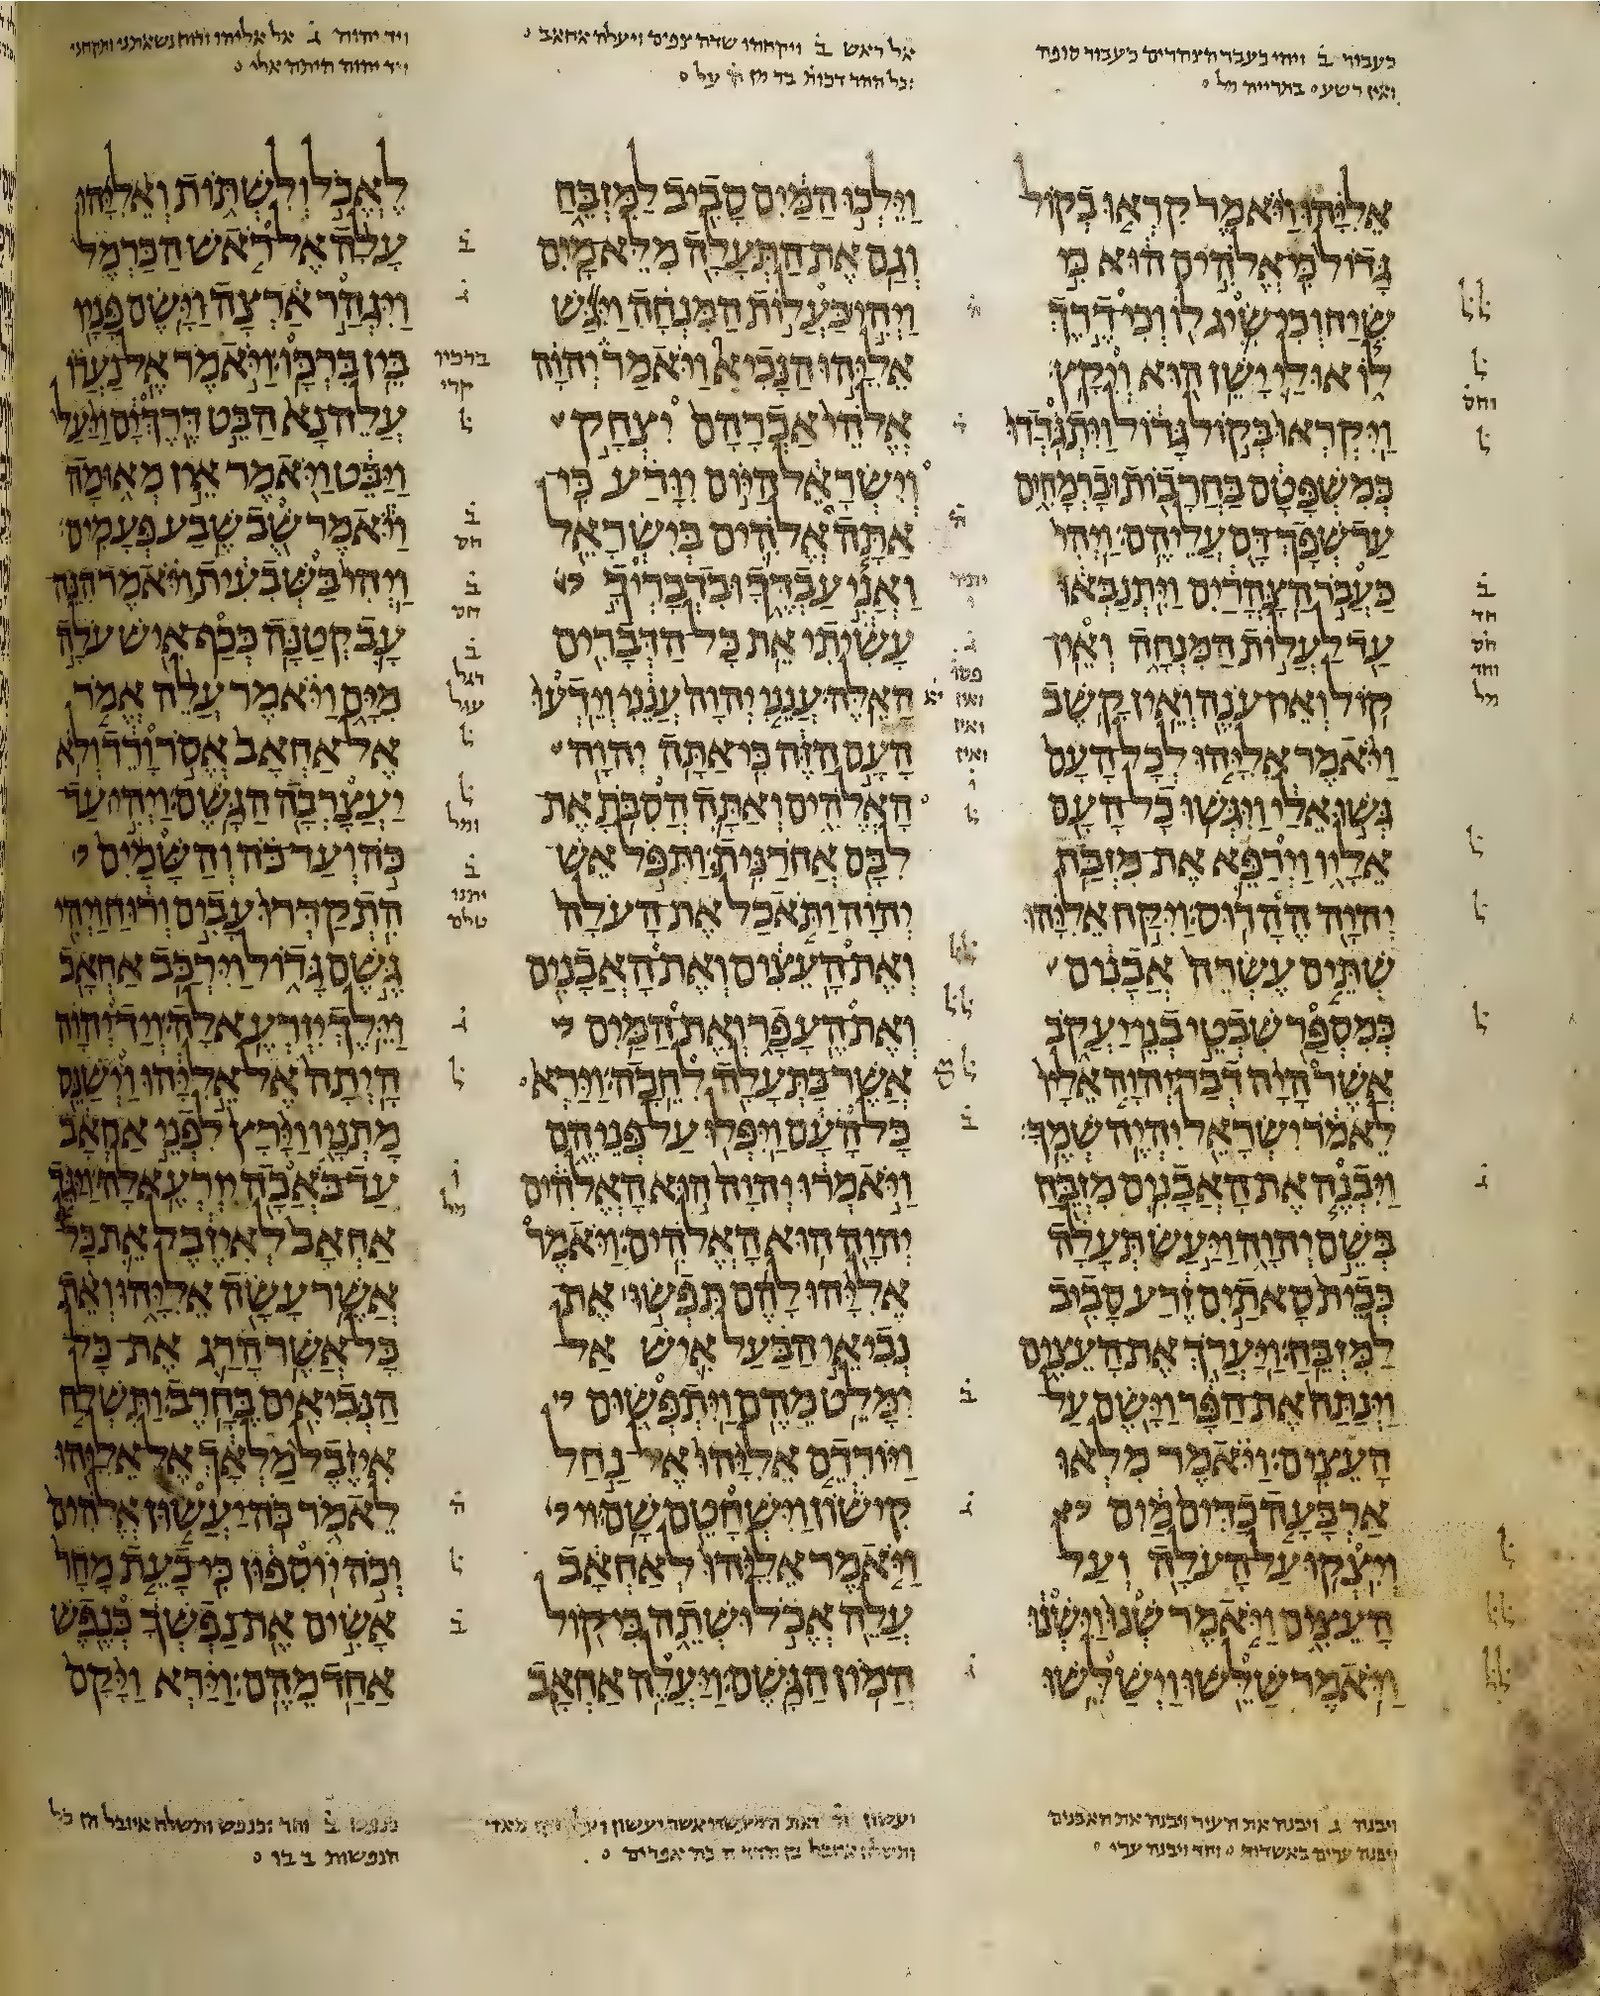 כעבור ב ויהי כעבר הצהרים כעבור סופה
ואין רשע ׳ בתרייה מל ׳
אליהו ויאמר קראו בקול
גדול כי אלהים הוא כי
שיח וכי שיג לו וכי דרך
לו אולי ישן הוא ויקץ׃
ויקראו בקול גדול ויתגדדו
כמשפטם בחרבות וברמחים
עד שפך דם עליהם׃ ויהי
כעבר הצהרים ויתנבאו
עד לעלות המנחה ואין
קול ואין ענה ואין קשב׃
ויאמר אליהו לכל העם
גשו אלי ויגשו כל העם
אליו וירפא את מזבח
יהוה ההרוס׃ ויקח אליהו
שתים עשרה אבנים
כמספר שבטי בני יעקב
אשר היה דבר יהוה אליו
לאמר ישראל יהיה שמך׃
ויבנה את האבנים מזבח
בשם יהוה ויעש תעלה
כבית סאתים זרע סביב
למזבח׃ ויערך את העצים
וינתח את הפר וישם על
העצים׃ ויאמר מלאו
ארבעה כדים מים
ויצקו על העלה ועל
העצים ויאמר שנו וישנו
ויאמר שלשו וישלשו׃
ל ל
ל
וחס
ל
ב
חד
חס
וחד
מל
ל
ל
ל
ג
ל
ל ל
ל ל
ויבנה ג ויבנה את העיר ויבנה את האבנים
ויבנה ערים באשדוד ׳ וחד ויבנה ערי ׳
אל ראש ב ויקחהו שדה צפים ויעלה אחאב ׳
וילכו המים סביב למזבח
וגם את התעלה מלא מים׃
ויהי בעלות המנחה ויגש
אליהו הנביא ויאמר יהוה
אלהי אברהם יצחק
וישראל היום יודע כי
אתה אלהים בישראל
ואני עבדך ובדבריך
עשיתי את כל הדברים
האלה׃ ענני יהוה ענני וידעו
העם הזה כי אתה יהוה
האלהים ואתה הסבת את
לבם אחרנית׃ ותפל אש
יהוה ותאכל את העלה
ואת העצים ואת האבנים
ואת העפר ואת המים
אשר בתעלה לחכה׃ וירא
כל העם ויפלו על פניהם
ויאמרו יהוה הוא האלהים
יהוה הוא האלהים׃ ויאמר
אליהו להם תפשו את
נביאי הבעל איש אל
ימלט מהם ויתפשום
ויורדם אליהו אל נחל
קישון וישחטם שם׃
ויאמר אליהו לאחאב
עלה אכל ושתה כי קול
המון הגשם׃ ויעלה אחאב
יתיר
ו
ג
פסו
ואין
ואין
ואין
ל
ל ל
ל ל
ב
ב
ג
ג
ויד יהוה ג אל אליהו ורוח נשאתני ותקחני
ויד יהוה היתה אלי ׳
לאכל ולשתות ואליהו
עלה אל ראש הכרמל
ויגהר ארצה וישם פניו
בין ברכו׃ ויאמר אל נערו
עלה נא הבט דרך ים ויעל
ויבט ויאמר אין מאומה
ויאמר שב שבע פעמים׃
ויהי בשבעית ויאמר הנה
עב קטנה ככף איש עלה
מים ויאמר עלה אמר
אל אחאב אסר ורד ולא
יעצרכה הגשם׃ ויהי עד
כה ועד כה והשמים
התקדרו עבים ורוח ויהי
גשם גדול וירכב אחאב
וילך יזרעאלה׃ ויד יהוה
היתה אל אליהו וישנס
מתניו וירץ לפני אחאב
עד באכה יזרעאלה׃ ויגד
אחאב לאיזבל את כל
אשר עשה אליהו ואת
כל אשר הרג את כל
הנביאים בחרב׃ ותשלח
איזבל מלאך אל אליהו
לאמר כה יעשון אלהים
וכה יוספון כי כעת מחר
אשים את נפשך כנפש
אחד מהם׃ וירא ויקם
ב
ג
ברכיו
קרי
ל
ב
חס
ב
חס
ב
ל
ל
ומל
ב
ל
ו
מל
ל
ב